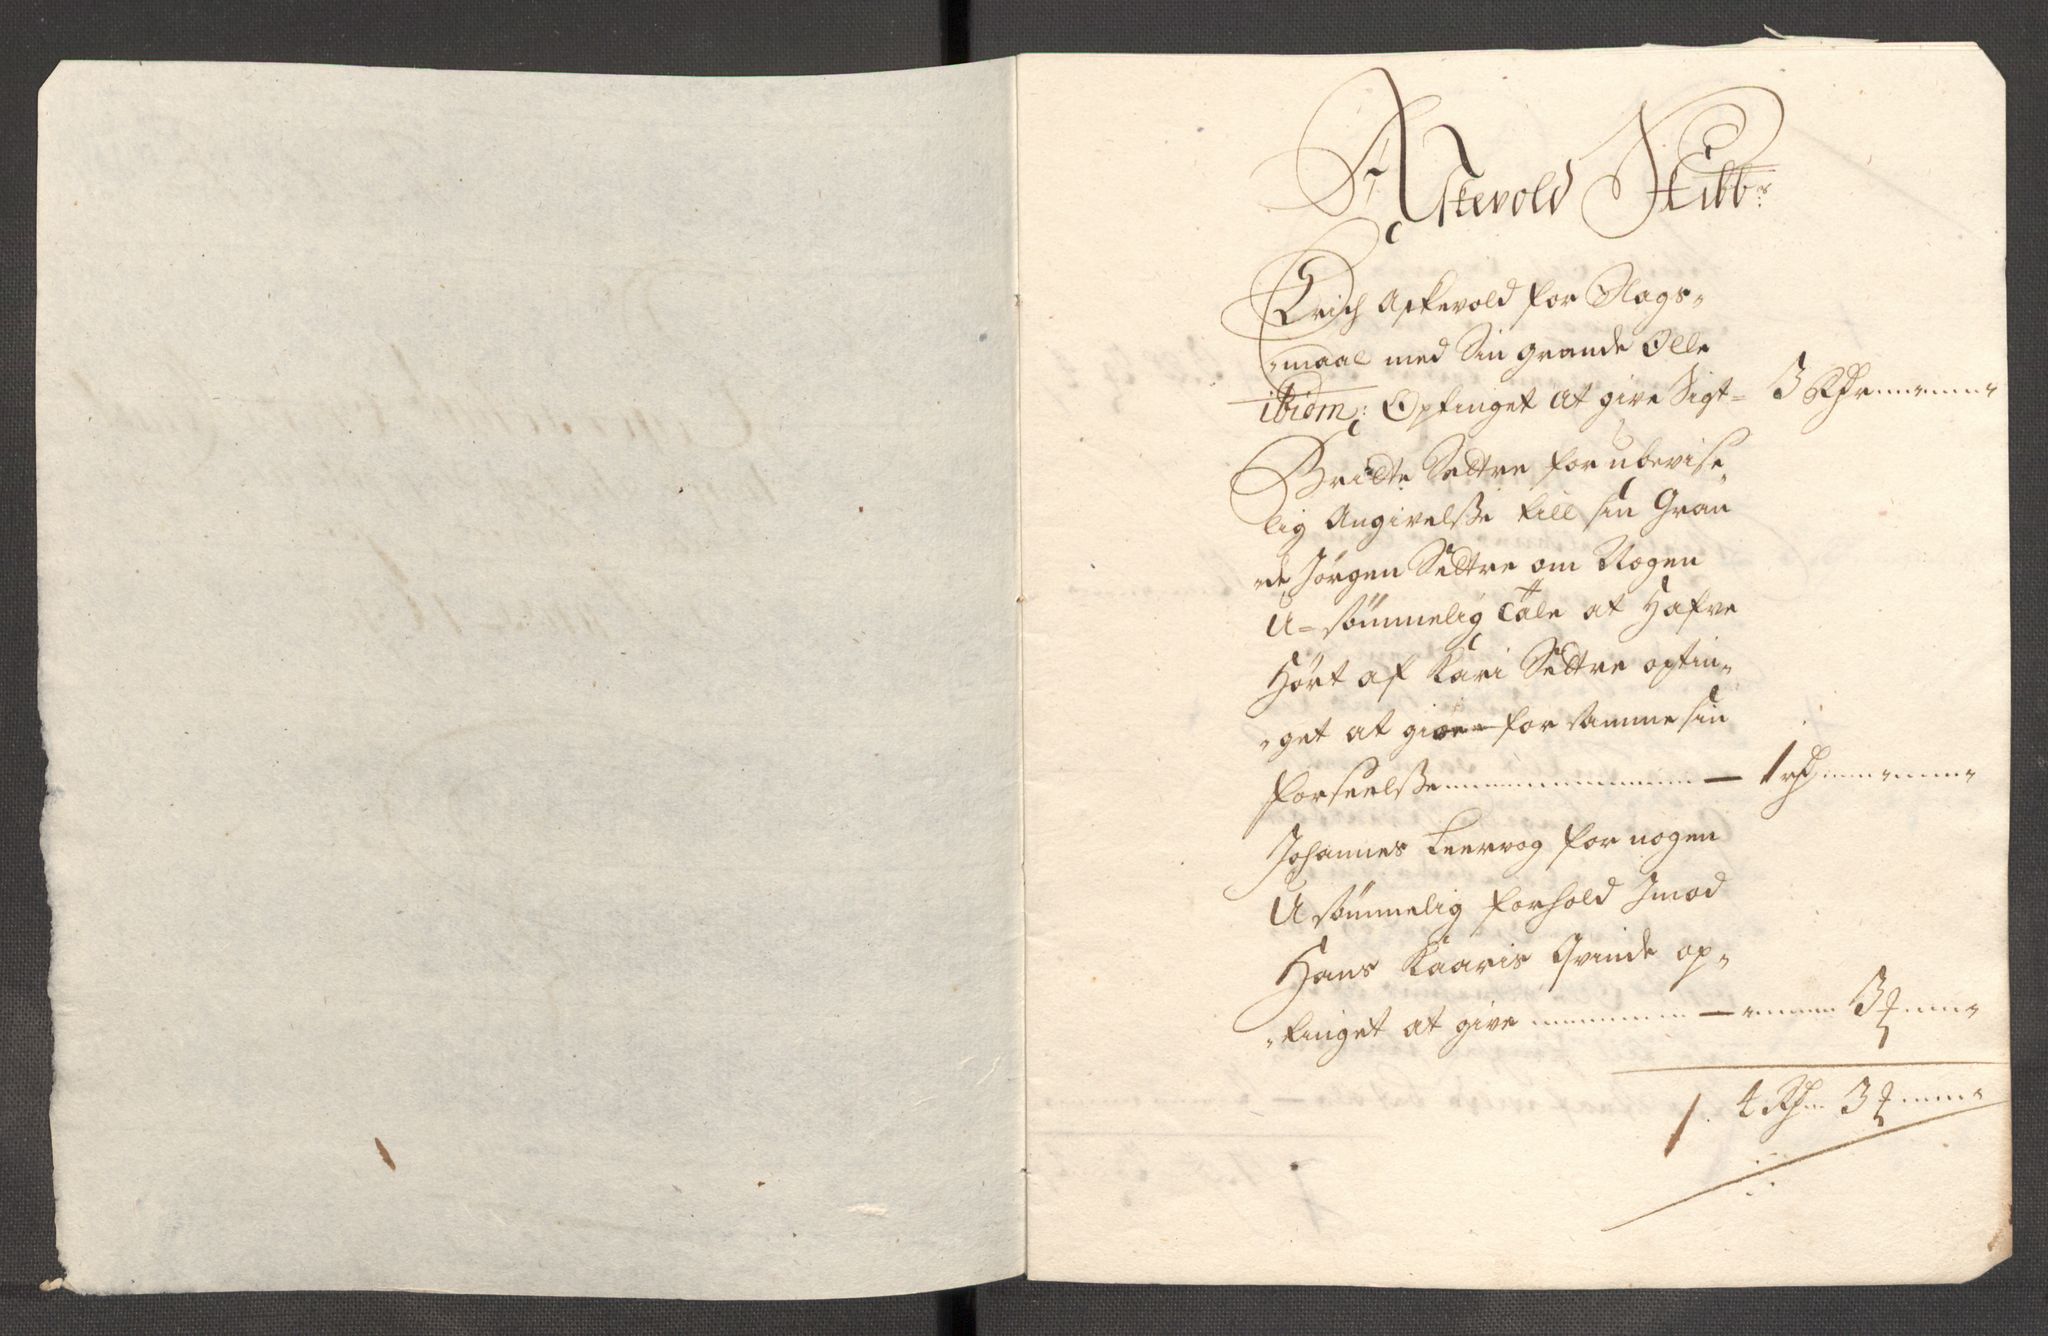 Askevold Skibb:r
Erich Askevold for Slags-
maal med Sin grande Olle
ibidm: Optinget at give Sigt= 3 Rdr
Britte Settre for ubevise
lig Angivelsse till sin Gran
de Jørgen Settre om Nogen
U=sømmelig Tale at Hafve
Hørt af Kari Settre optin-
get at give for samme sin
forseelsse — 1 rdr
Johannes Leervog for nogen
Usømmelig forhold Imod
Hans Kaaris Qvinde op-
tinget at give — 3 ꝑ
4 Rdr 3 ꝑ